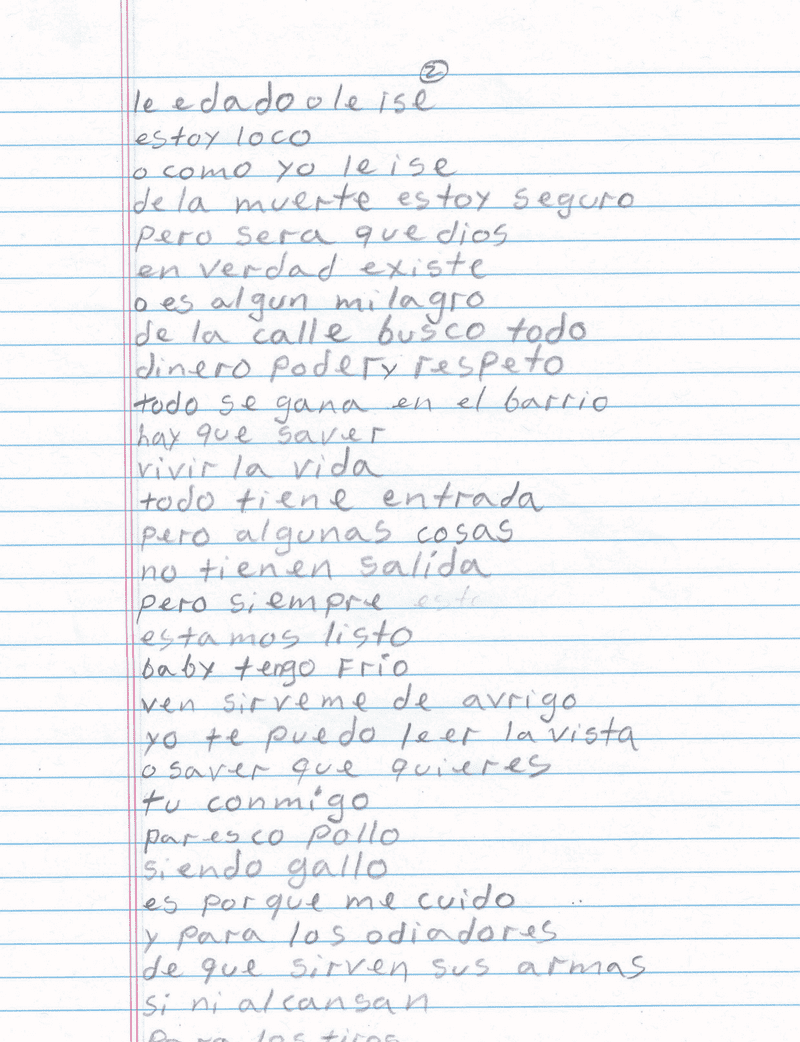 2
le edado o le ise
estoy loco
o como yo le ise
de la muerte estoy seguro
pero sera que dios
en verdad existe
o es algun milagro
de la calle busco todo
dinero poder y respeto
todo se gana en el barrio
hay que saver
vivir la vida
todo tiene entrada
pero algunas cosas
no tienen salida
pero siempre esta
estamos listo
baby tengo Frio
ven sirveme de avrigo
yo te puedo leer la vista
o saver que quieres
tu conmigo
paresco pollo
siendo gallo
es porque me cuido
y para los odiadores
de que sirven sus armas
si ni alcansan
Para los tiros